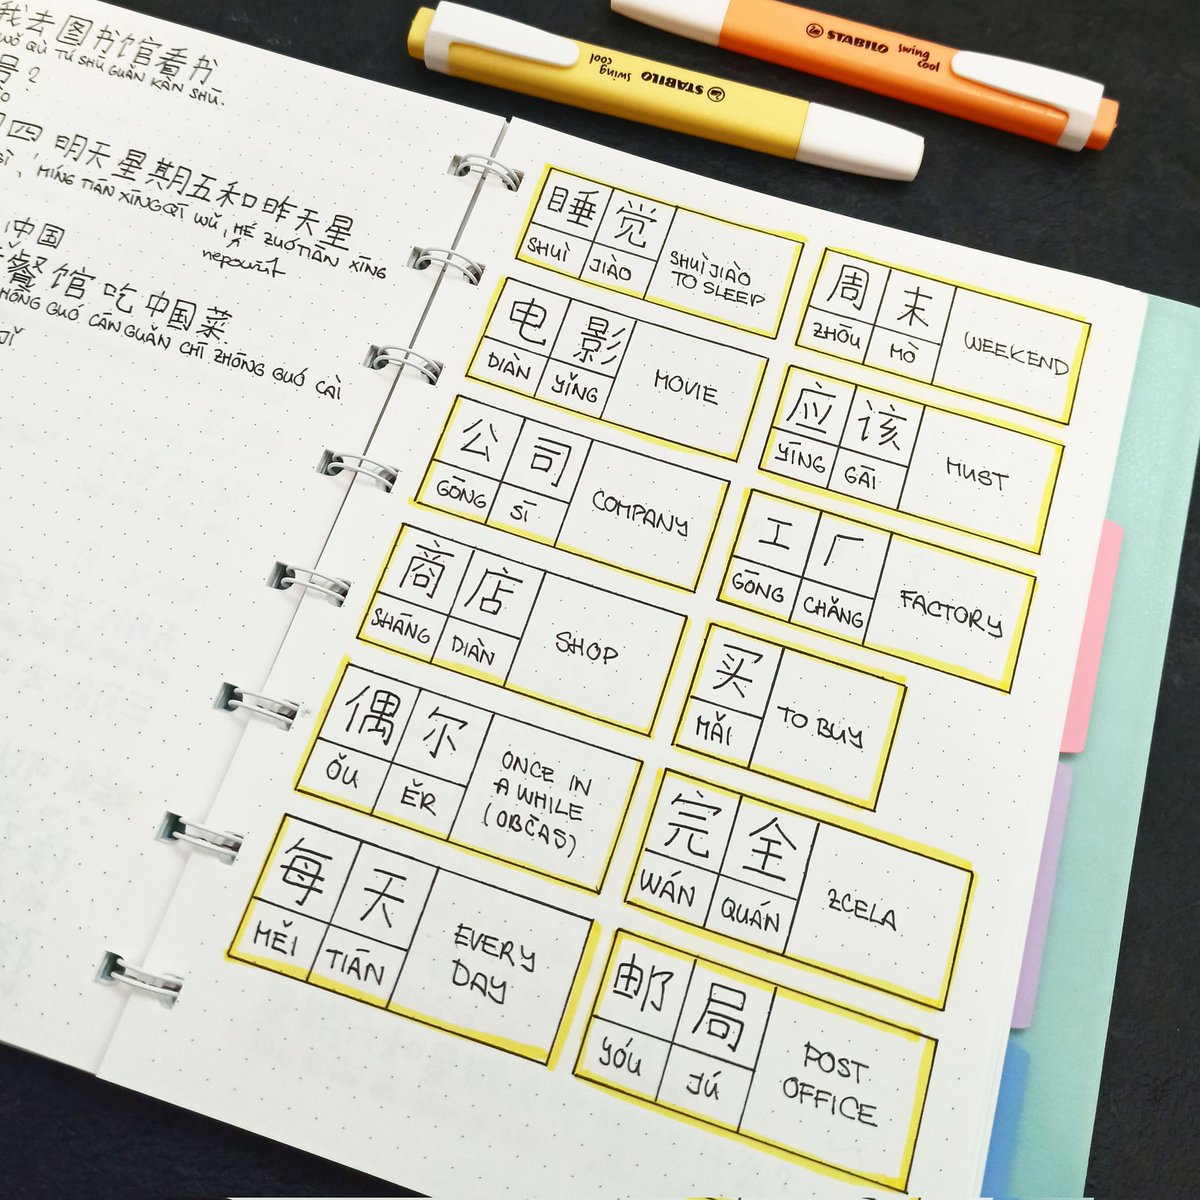 我去图书馆看书
WǑ QÙ TÚ SHŪ GUǍN KÀN SHŪ.
号?
四, 明天星期五和昨天星
SÌ, MÍNG TIĀN XĪNGQĪ WǓ, HÉ ZUÓ TIĀN XĪNG
中国
餐馆吃中国菜
ZHŌNG GUÓ CĀN GUǍN CHĪ ZHŌNG GUÓ CÀI
STABILO swing cool
STABILO swing cool
睡觉
SHUÌ JIÀO
SHUÌ JIÀO
TO SLEEP
电影
DIÀN YǏNG
MOVIE
公司
GŌNG SĪ
COMPANY
商店
SHĀNG DIÀN
SHOP
偶尔
ǑU ĚR
ONCE IN
A WHILE
(OBČAS)
每天
MĚI TIĀN
EVERY
DAY
周末
ZHŌU MÒ
WEEKEND
应该
YĪNG GĀI
MUST
工厂
GŌNG CHǍNG
FACTORY
买
MǍI
TO BUY
完全
WÁN QUÁN
ZCELA
邮局
YÓU JÚ
POST
OFFICE